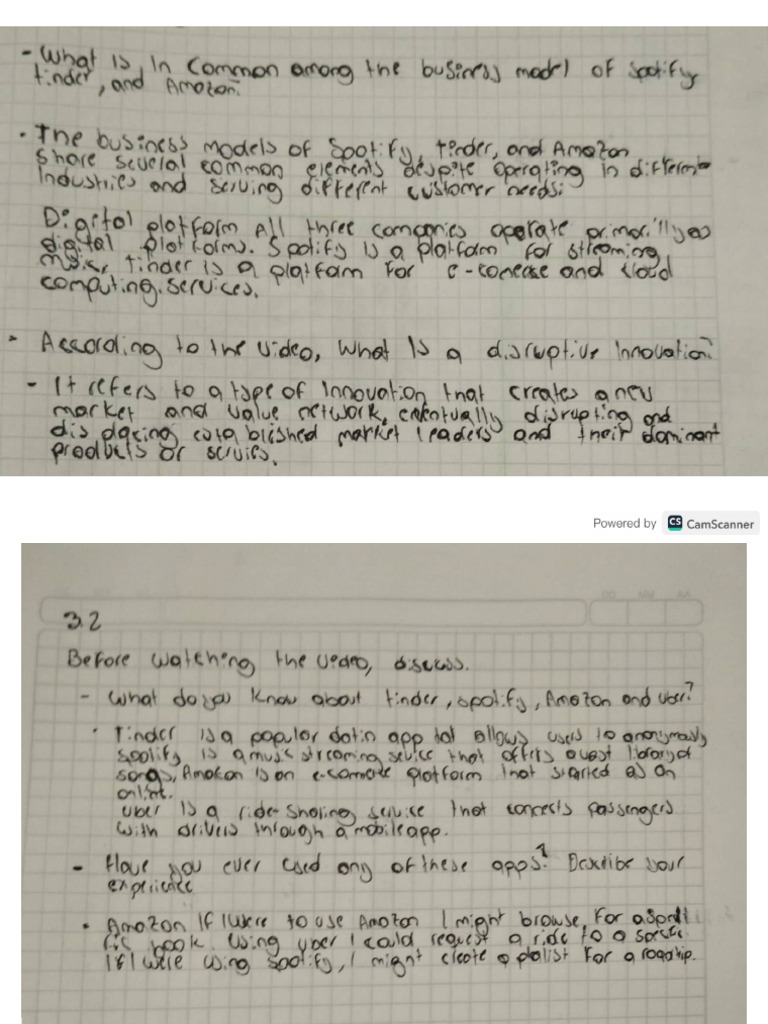 - What is in common among the business model of Spotify
tinder, and Amazon.
• The business models of Spotify, tinder, and Amazon
share several common elements despite operating in different
Industries and serving different customer needs:
Digital platform All three companies operate primarilly as
digital platforms. Spotify is a platform for streaming
music, tinder is a platfam for e-conerse and cloud
computing services.
• According to the video, what is a disruptive Innovation?
- It refers to a type of innovation that creates a new
market and value network, eventually disrupting and
displacing established market leaders and their dominant
products or services.
Powered by CS CamScanner
DD MM AA
3.2
Before watching the video, discuss.
- What do you know about tinder, spotify, Amozon and uber?
• Tinder is a popular datin app tat allows users to anonymously
spotify is a music streaming sevice that offers a vast library of
songs, Amozon is an e-commerce platform that started as an
online.
uber is a ride-sharing service that connects passengers
with drivers through a mobile app.
- Have you ever used any of these apps? Describe your
experience
• Amozon If I were to use Amozon I might browse, for a
book. Using uber I could request a ride to a specific
If I were using spotify, I might cleote a plalist for a roadtrip.